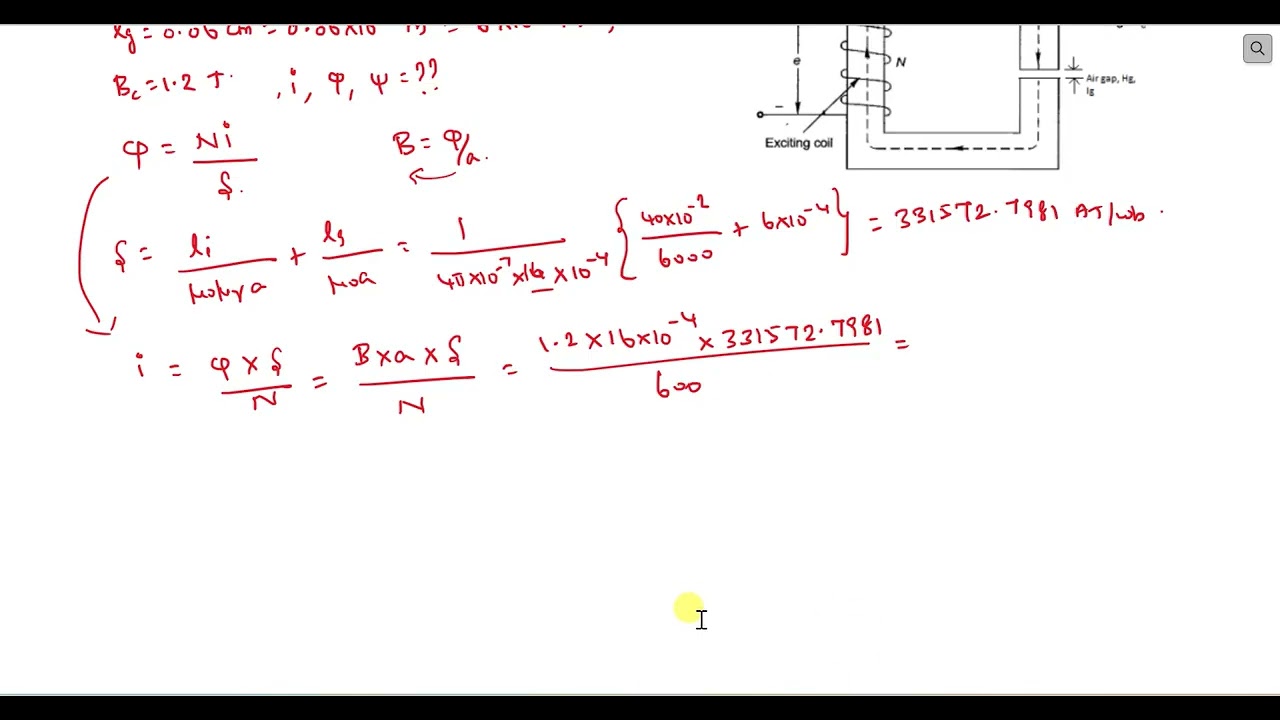 lg = 0.06 cm = 0.06×10
Bc = 1.2 T. , i, φ, ψ = ??
φ = Ni / S.
B = φ/a.
S = li / μ0μra + lg / μ0a = 1 / 4π×10^-7 ×16 ×10^-4 { 40×10^-2 / 6000 + 6×10^-4 } = 331572.7981 AT/wb.
i = φ×S / N = B×a×S / N = 1.2×16×10^-4 × 331572.7981 / 600 =
e
N
Air gap, Hg,
lg
−
Exciting coil